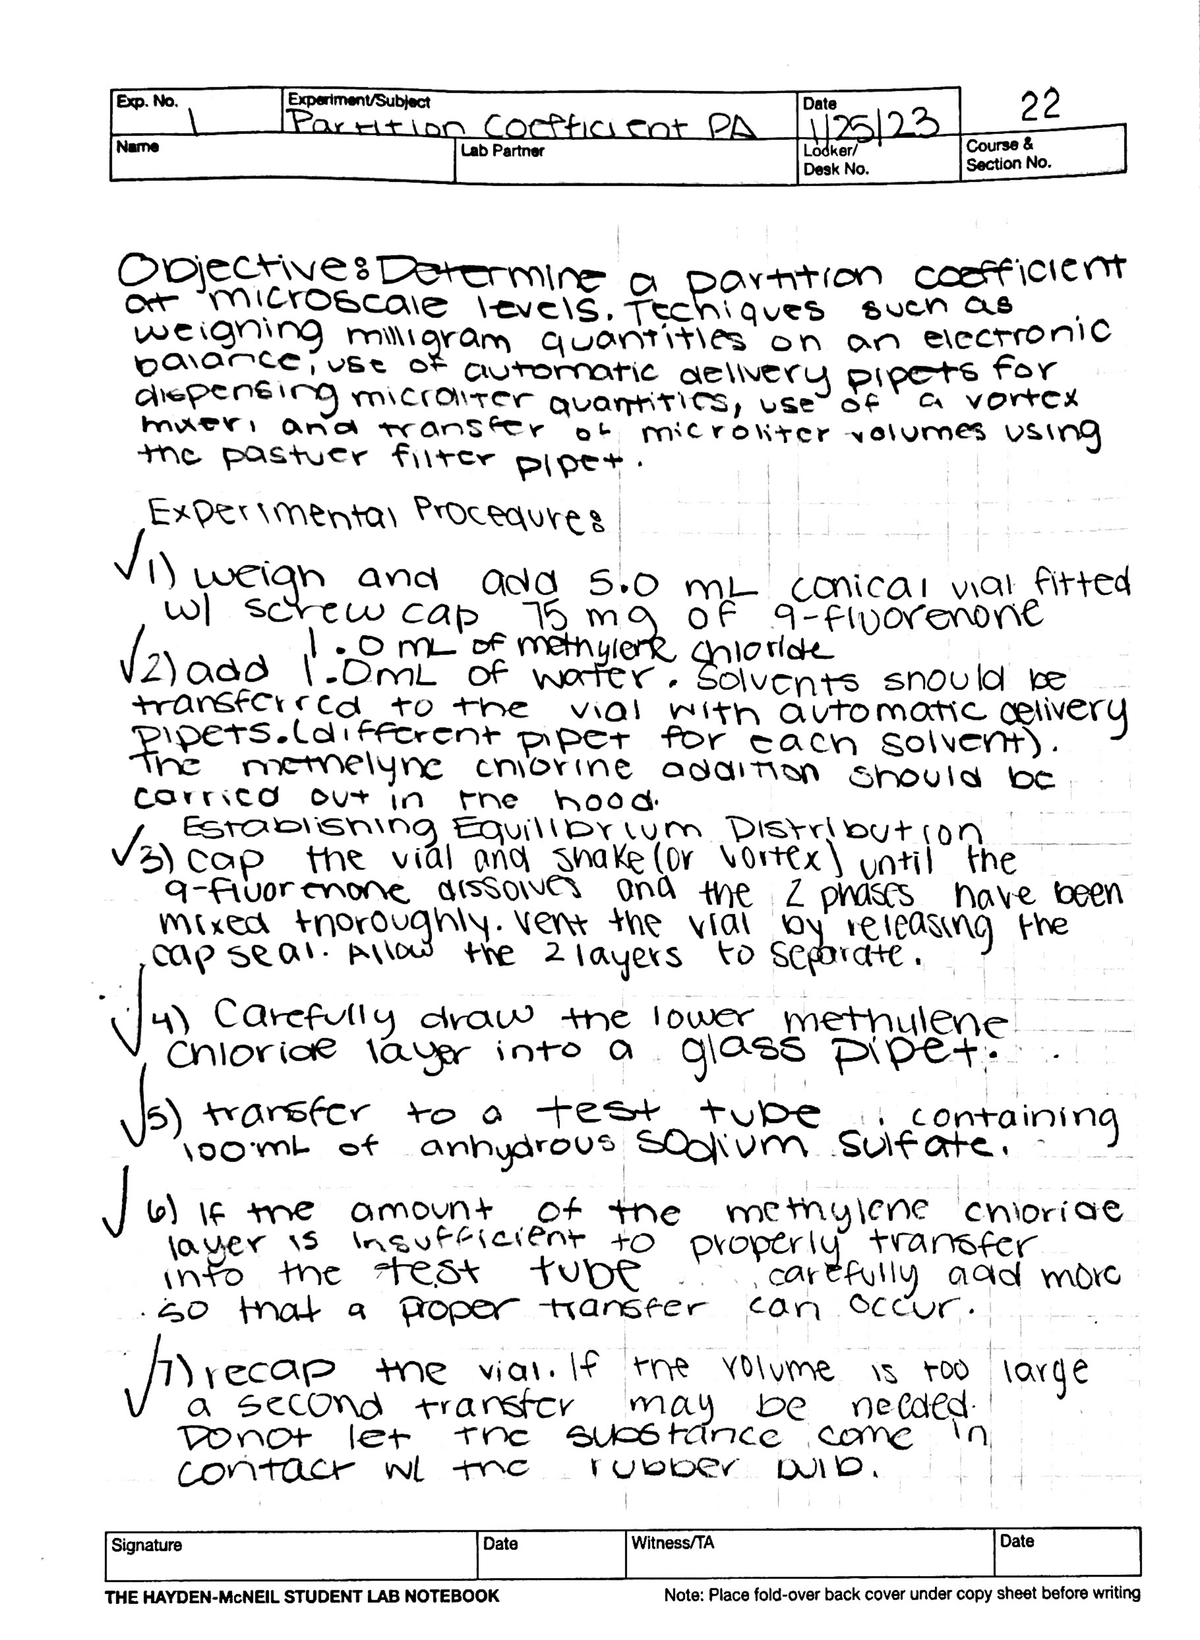 Exp. No. 1
Experiment/Subject Partition Coefficient PA
Date 1/25/23
22
Name
Lab Partner
Locker/ Desk No.
Course & Section No.
Objective: Determine a partition coefficient
at microscale levels. Techiques such as
weigning milligram quantities on an electronic
balance, use of automatic delivery pipets for
dispensing microliter quantities, use of a vortex
mixer, and transfer of microliter volumes using
the pastuer filter pipet.
Experimental Procedure:
√1) weigh and add 5.0 mL conical vial fitted
w/ screw cap 75 mg of 9-fluorenone
1.0 mL of methylene chloride
√2) add 1.0mL of water. Solvents should be
transferred to the vial with automatic delivery
pipets. (different pipet for each solvent).
The methelyne chlorine addition should be
carried out in the hood.
Establishing Equilibrium Distribution
√3) cap the vial and shake (or vortex) until the
9-fluorenone dissolves and the 2 phases have been
mixed thoroughly. Vent the vial by releasing the
cap seal. Allow the 2 layers to separate.
√4) Carefully draw the lower methylene
chloride layer into a glass pipet.
√5) transfer to a test tube containing
100 mL of anhydrous sodium sulfate.
√6) If the amount of the methylene chloride
layer is insufficient to properly transfer
into the test tube carefully add more
so that a proper transfer can occur.
√7) recap the vial. If the volume is too large
a second transfer may be needed.
Do not let the substance come in
contact w/ the rubber bulb.
Signature
Date
Witness/TA
Date
THE HAYDEN-McNEIL STUDENT LAB NOTEBOOK
Note: Place fold-over back cover under copy sheet before writing